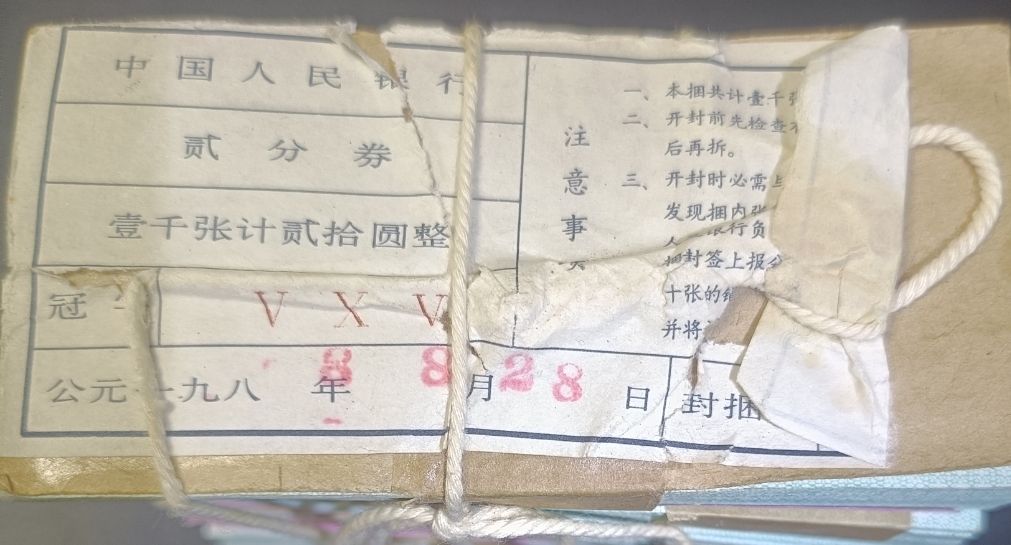 中国人民银行
贰分券
壹千张计贰拾圆整
冠
V X V
公元一九八 8 年 8 月 28 日
封捆
注意事
一、本捆共计壹千张
二、开封前先检查
后再拆。
三、开封时必需
发现捆内张
人 银行负
捆封签上报
十张的
并将